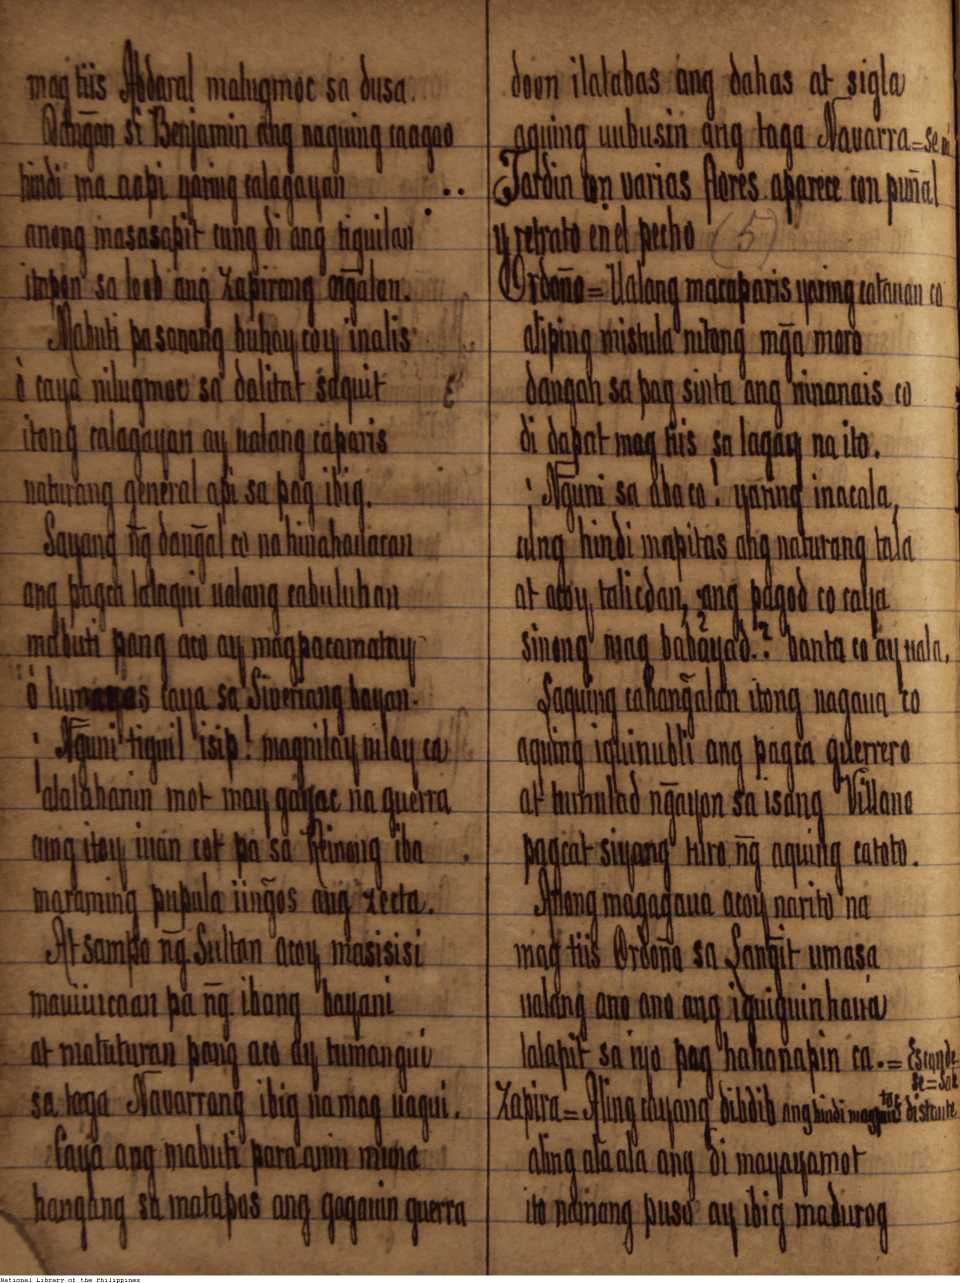 mag tiis Abdaral malugmoc sa dusa.
si Benjamin ang naguing caagao
hindi ma aapi yaring calagayan
anong masasapit cung di ang tiguilan
itipon sa loob ang Zapirang
Mabuti pa sanang buhay coy inalis
ò caya nilugmoc sa dalitat saquit
itong calagayan ay ualang caparis
naturang general api sa pag ibig.
Sayang ñg dañgal co na hinahauacan
ang pagca lalaqui ualang cabuluhan
mabuti pang aco ay magpacamatay
ò lumapas caya sa Sineñang bayan.
¡Ñguni tiguil isip! magnilay nilay ca
alalahanin mot may gayac na guerra
cung itoy iuan cot pa sa Reinong iba
maraming pupula iiñgos ang zecta.
At sampo ñg Sultan acoy masisisi
mauiuicaan pa ñg ibang bayani
at matuturan pang aco ay tumangui
sa taga Navarrang ibig na mag uagui.
Caya ang mabuti para anin muna
hangang sa matapos ang gagauin guerra
doon ilalabas ang dahas at sigla
aquing uubusin ang taga Navarra=se
Jardin con varias flores aparece con puñal
y retrato en el pecho (5)
Ordoña= Ualang macaparis yaring catauan co
aliping mistula nitong mg̃a moro
dangan sa pag sinta ang ninanais co
di dapat mag tiis sa lagay na ito.
¡Ñguni sa aba co! yaring inacala,
cung hindi mapitas ang naturang tala
at acoy talicdan, ang pagod co caya
sinong mag babayad?? banta co ay uala,
Saquing cahañgalan itong nagaua co
aquing iquinubli ang pagca guerrero
at tumulad ñgayon sa isang Villano
pagcat siyang turo ñg aquing catoto.
Anong magagaua acoy narito na
mag tiis Ordoña sa Lañgit umasa
ualang ano ano ang iguiguinhaua
lalapit sa iyo pag hahanapin ca.= Esconde
se=Sale
Zapira= Aling cayang dibdib ang hindi magtiis distante
aling ala ala ang di mayayamot
ito namang puso ay ibig madurog
National Library of the Philippines